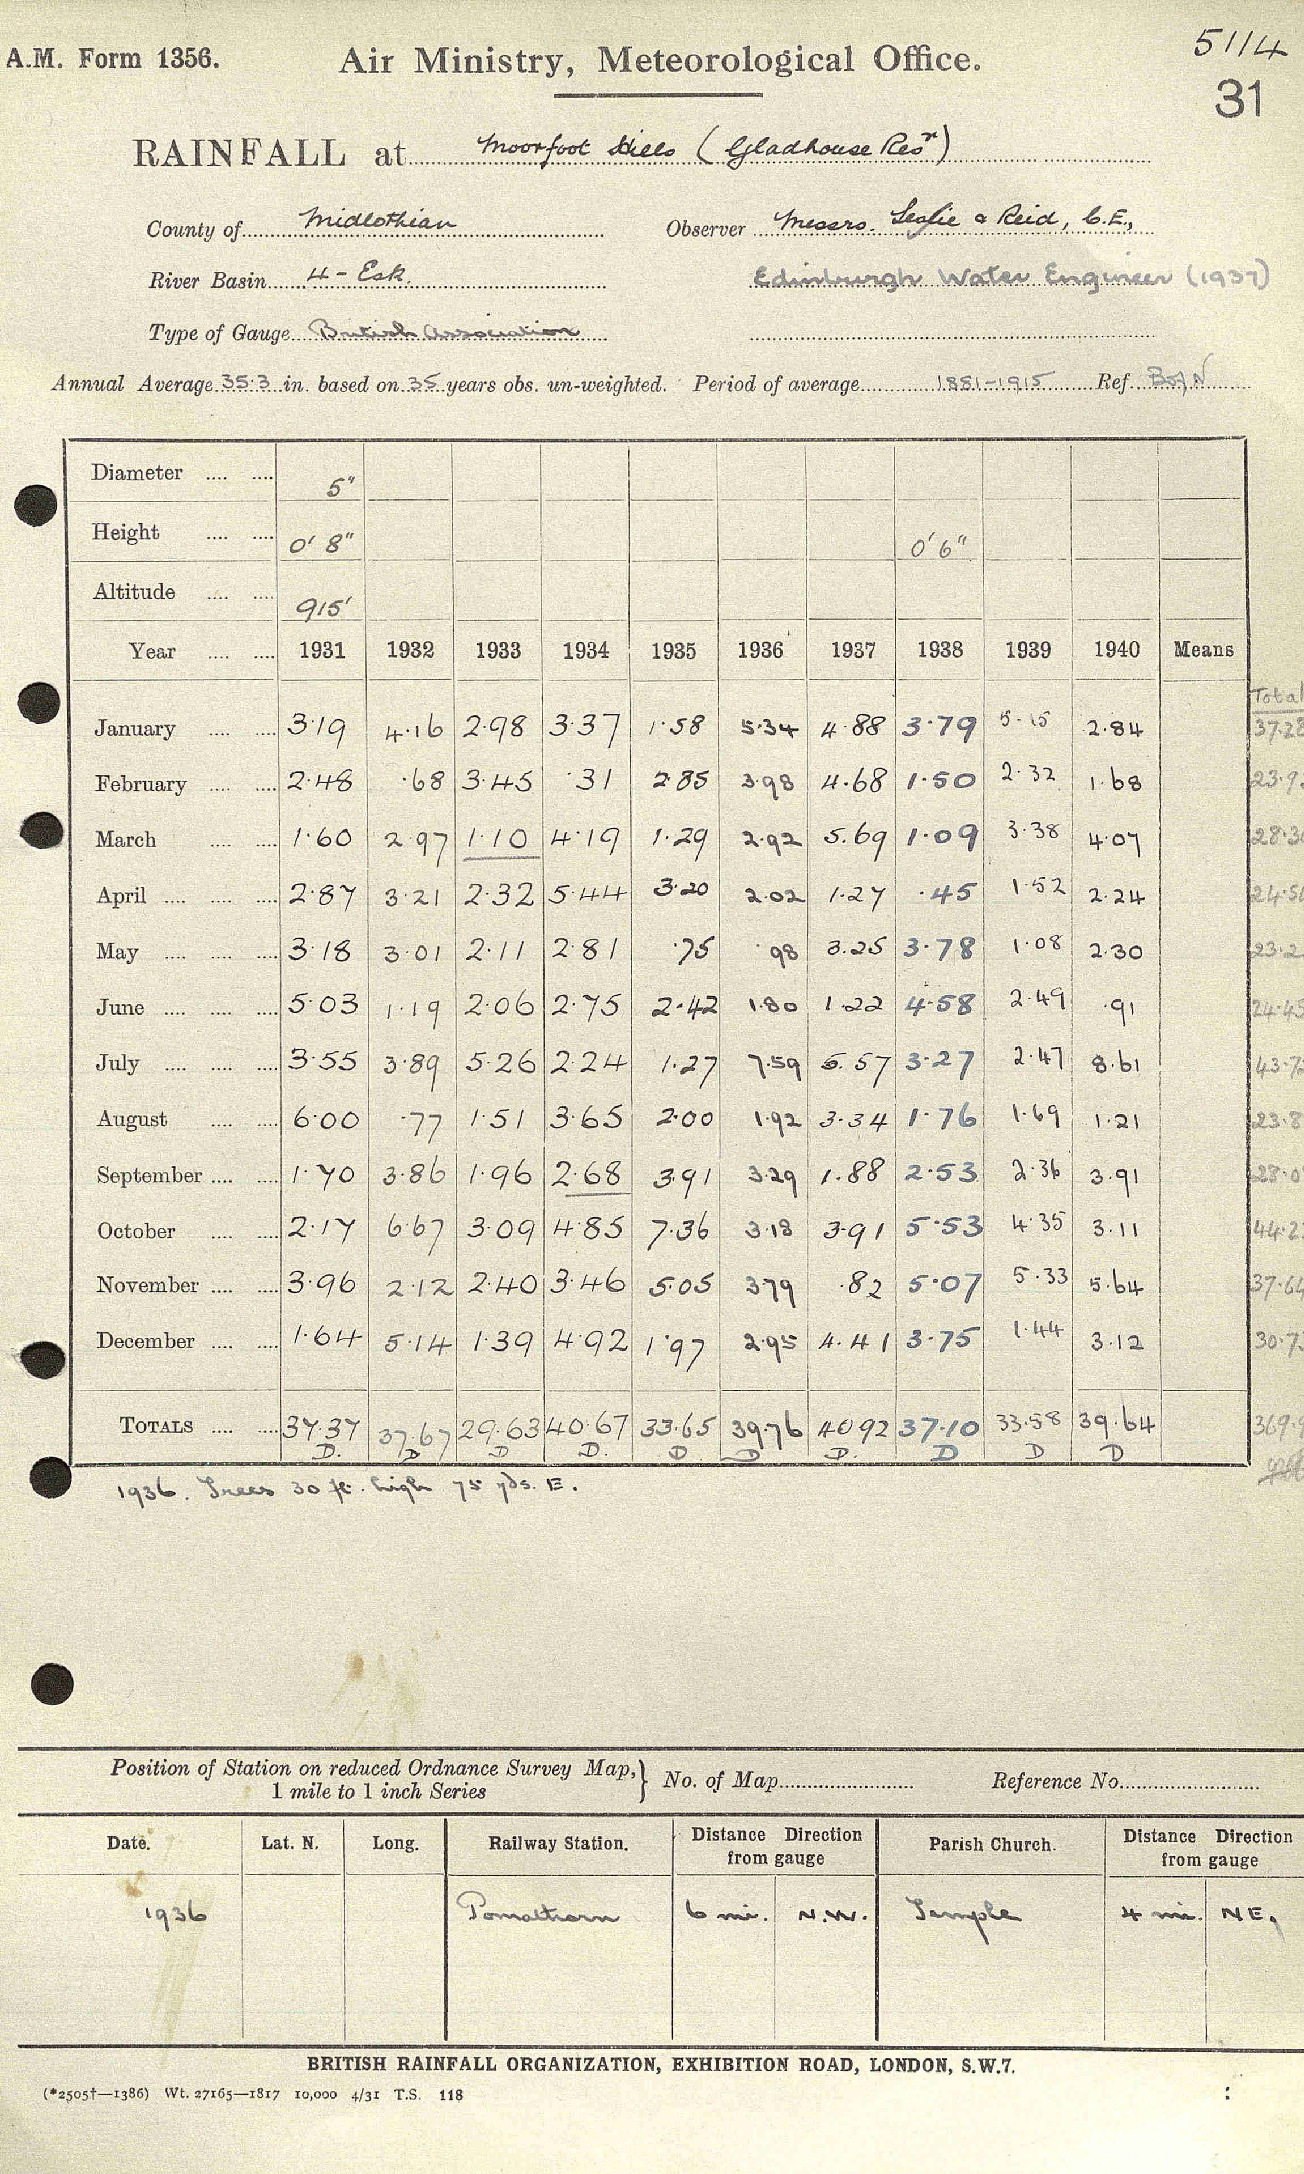 5114
A.M. Form 1356. Air Ministry, Meteorological Office.
31
RAINFALL at Moorfoot Hills (Gladhouse Resr)
County of Midlothian Observer Messrs. Leslie & Reid, C.E.,
River Basin 4 - Esk. Edinburgh Water Engineer (1937)
Type of Gauge British Association
Annual Average 35.3 in. based on 35 years obs. un-weighted. Period of average 1881-1915 Ref. B of N
Diameter .... .... 5"
Height .... .... 0' 8" 0' 6"
Altitude .... .... 915'
Year .... .... 1931 1932 1933 1934 1935 1936 1937 1938 1939 1940 Means
Total
January .... .... 3.19 4.16 2.98 3.37 1.58 5.34 4.88 3.79 5.15 2.84 37.28
February .... .... 2.48 .68 3.45 .31 2.85 3.98 4.68 1.50 2.32 1.68 23.9
March .... .... 1.60 2.97 1.10 4.19 1.29 2.92 5.69 1.09 3.38 4.07 28.30
April .... .... .... 2.87 3.21 2.32 5.44 3.20 2.02 1.27 .45 1.52 2.24 24.5
May .... .... .... 3.18 3.01 2.11 2.81 .75 .98 3.25 3.78 1.08 2.30 23.2
June .... .... .... 5.03 1.19 2.06 2.75 2.42 1.80 1.22 4.58 2.49 .91 24.45
July .... .... .... 3.55 3.89 5.26 2.24 1.27 7.59 5.57 3.27 2.47 8.61 43.72
August .... .... 6.00 .77 1.51 3.65 2.00 1.92 3.34 1.76 1.69 1.21 23.8
September .... .... 1.70 3.86 1.96 2.68 3.91 3.29 1.88 2.53 2.36 3.91 28.0
October .... .... 2.17 6.67 3.09 4.85 7.36 3.18 3.91 5.53 4.35 3.11 44.2
November .... .... 3.96 2.12 2.40 3.46 5.05 3.79 .82 5.07 5.33 5.64 37.64
December .... .... 1.64 5.14 1.39 4.92 1.97 2.95 4.41 3.75 1.44 3.12 30.73
TOTALS .... .... 37.37 37.67 29.63 40.67 33.65 39.76 40.92 37.10 33.58 39.64 369.9
D. D D D. D D D. D D D
1936. Trees 30 ft. high 75 yds. E.
Position of Station on reduced Ordnance Survey Map, 1 mile to 1 inch Series } No. of Map Reference No.
Date. Lat. N. Long. Railway Station. Distance Direction from gauge Parish Church. Distance Direction from gauge
1936 Pomathorn 6 mi. N.W. Temple 4 mi. NE.
BRITISH RAINFALL ORGANIZATION, EXHIBITION ROAD, LONDON, S.W.7.
(*2505†—1386) Wt. 27165—1817 10,000 4/31 T.S. 118